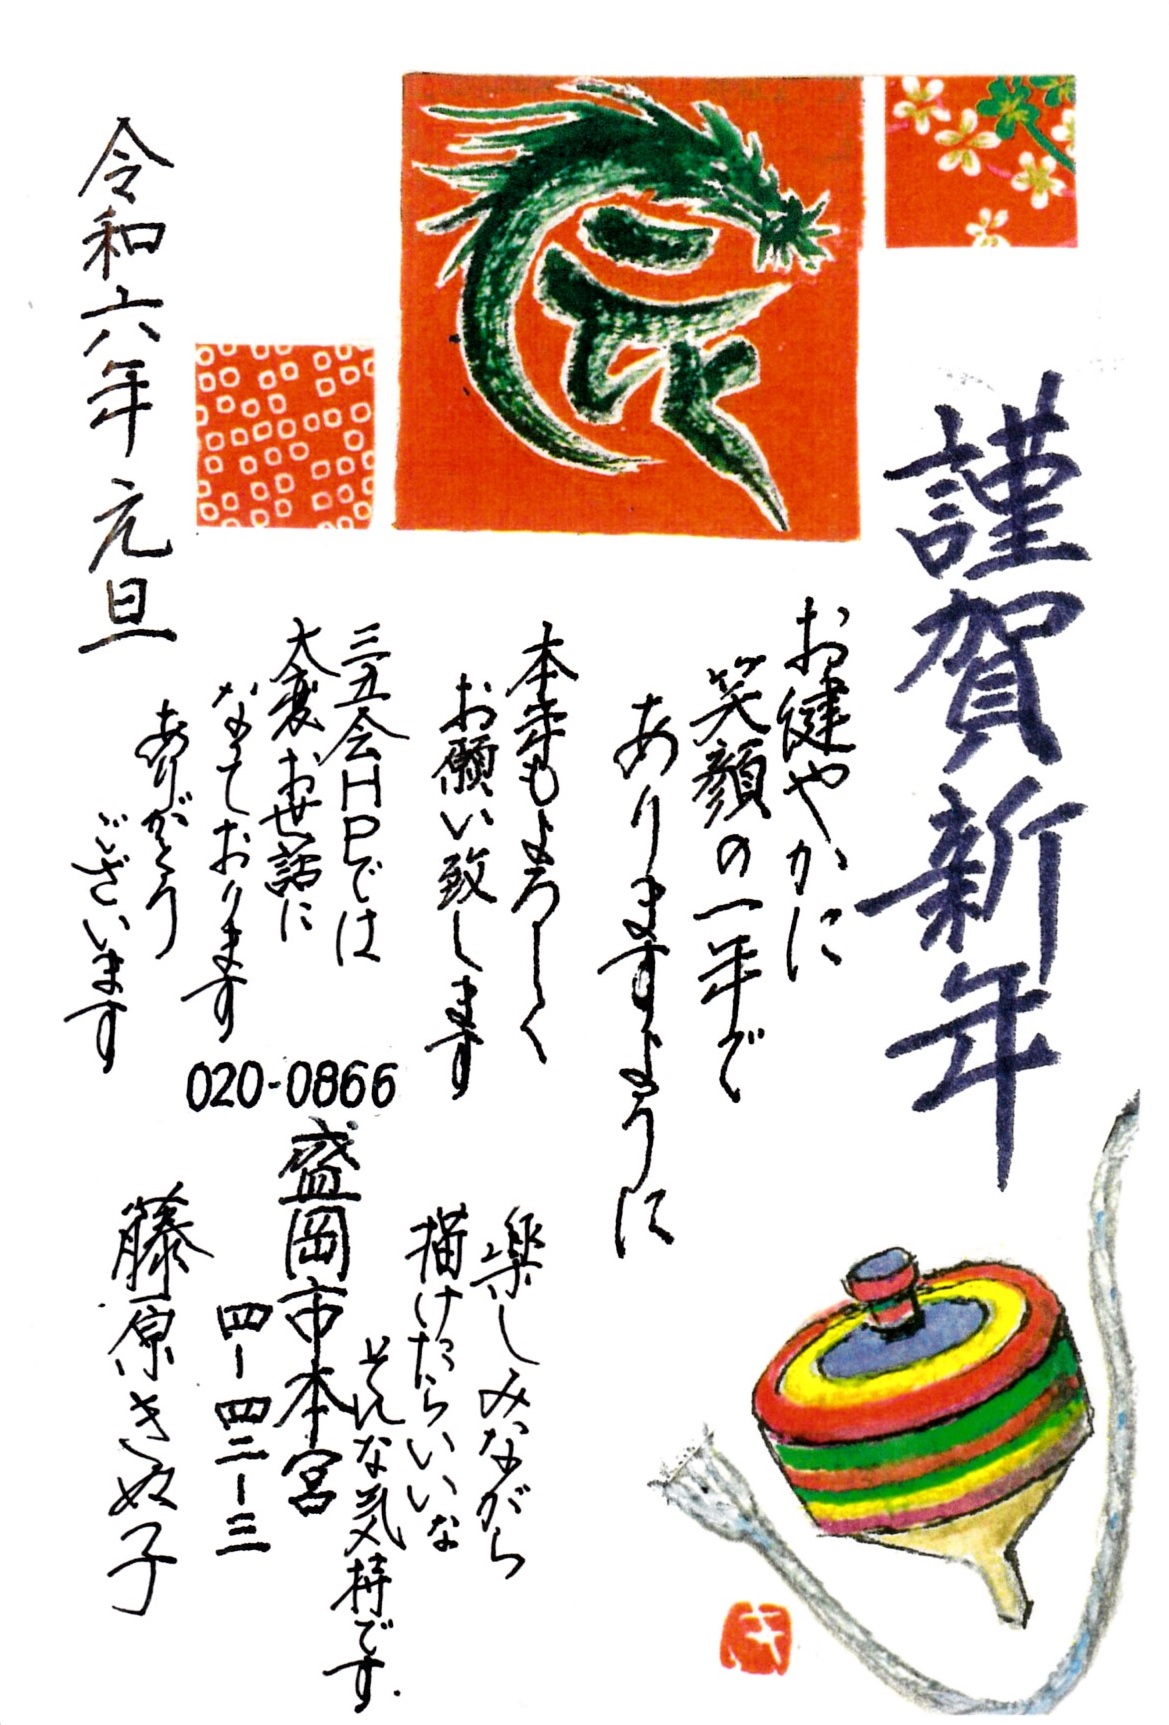 謹賀新年
お健やかに
笑顔の一年で
ありますように
本年もよろしく
お願い致します
三五会HPでは
大変お世話に
なっております
ありがとう
ございます
令和六年 元旦
楽しみながら
描けたらいいな
そんな気持です.
020-0866
盛岡市本宮
四-四二-三
藤原きぬ子
キ